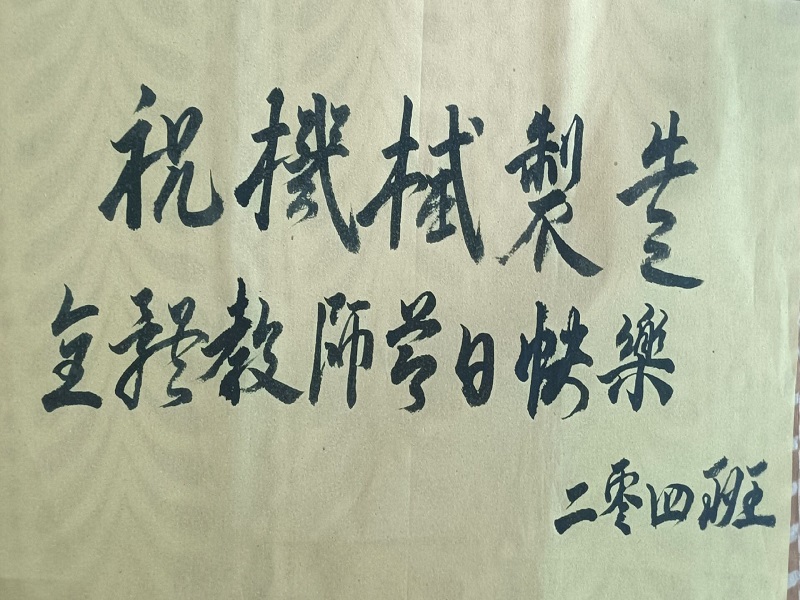 祝機械製造
全體教師節日快樂
二零四班